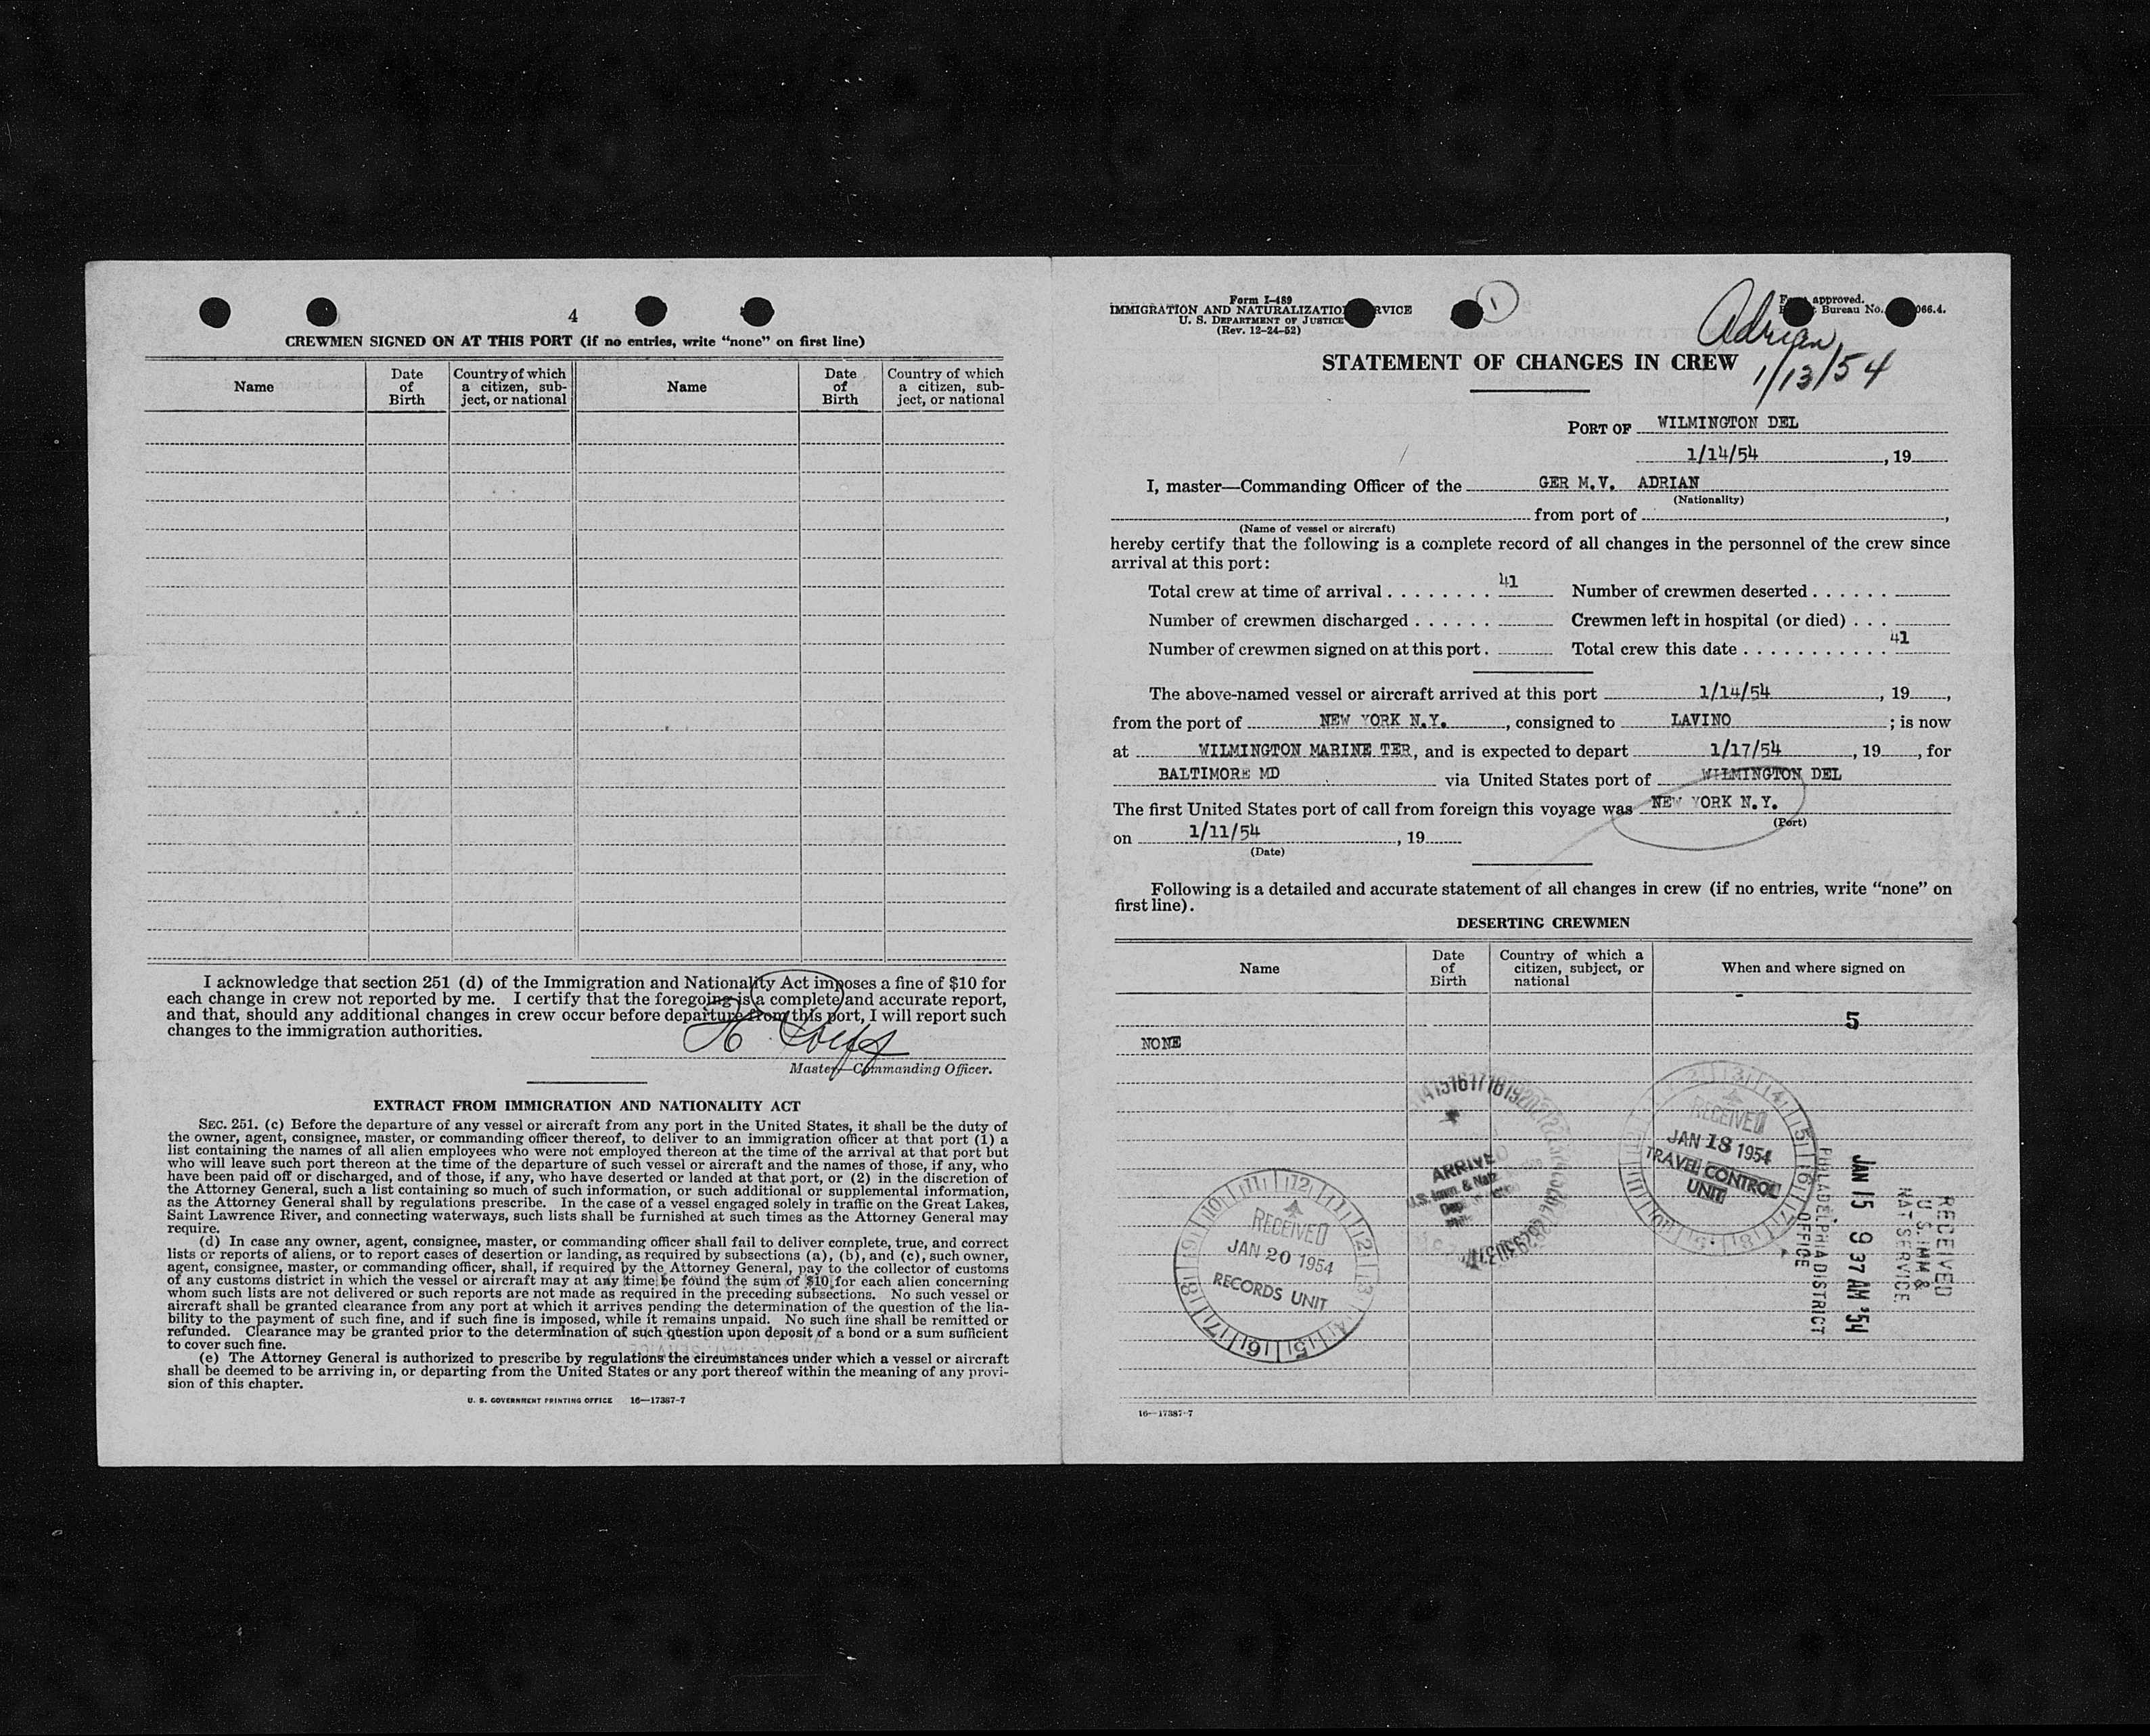 4
CREWMEN SIGNED ON AT THIS PORT (if no entries, write “none” on first line)
Name
Date of Birth
Country of which a citizen, sub-ject, or national
Name
Date of Birth
Country of which a citizen, sub-ject, or national
I acknowledge that section 251 (d) of the Immigration and Nationality Act imposes a fine of $10 for
each change in crew not reported by me. I certify that the foregoing is a complete and accurate report,
and that, should any additional changes in crew occur before departure from this port, I will report such
changes to the immigration authorities.
Master—Commanding Officer.
EXTRACT FROM IMMIGRATION AND NATIONALITY ACT
SEC. 251. (c) Before the departure of any vessel or aircraft from any port in the United States, it shall be the duty of
the owner, agent, consignee, master, or commanding officer thereof, to deliver to an immigration officer at that port (1) a
list containing the names of all alien employees who were not employed thereon at the time of the arrival at that port but
who will leave such port thereon at the time of the departure of such vessel or aircraft and the names of those, if any, who
have been paid off or discharged, and of those, if any, who have deserted or landed at that port, or (2) in the discretion of
the Attorney General, such a list containing so much of such information, or such additional or supplemental information,
as the Attorney General shall by regulations prescribe. In the case of a vessel engaged solely in traffic on the Great Lakes,
Saint Lawrence River, and connecting waterways, such lists shall be furnished at such times as the Attorney General may
require.
(d) In case any owner, agent, consignee, master, or commanding officer shall fail to deliver complete, true, and correct
lists or reports of aliens, or to report cases of desertion or landing, as required by subsections (a), (b), and (c), such owner,
agent, consignee, master, or commanding officer, shall, if required by the Attorney General, pay to the collector of customs
of any customs district in which the vessel or aircraft may at any time be found the sum of $10 for each alien concerning
whom such lists are not delivered or such reports are not made as required in the preceding subsections. No such vessel or
aircraft shall be granted clearance from any port at which it arrives pending the determination of the question of the lia-
bility to the payment of such fine, and if such fine is imposed, while it remains unpaid. No such fine shall be remitted or
refunded. Clearance may be granted prior to the determination of such question upon deposit of a bond or a sum sufficient
to cover such fine.
(e) The Attorney General is authorized to prescribe by regulations the circumstances under which a vessel or aircraft
shall be deemed to be arriving in, or departing from the United States or any port thereof within the meaning of any provi-
sion of this chapter.
U. S. GOVERNMENT PRINTING OFFICE 16—17387-7
Form I-489
IMMIGRATION AND NATURALIZATION SERVICE
U. S. DEPARTMENT OF JUSTICE
(Rev. 12-24-52)
1
approved.
Bureau No. 066.4.
Adrian
1/13/54
STATEMENT OF CHANGES IN CREW
PORT OF WILMINGTON DEL
1/14/54, 19
I, master—Commanding Officer of the GER M.V. ADRIAN
(Nationality)
from port of ,
(Name of vessel or aircraft)
hereby certify that the following is a complete record of all changes in the personnel of the crew since
arrival at this port:
Total crew at time of arrival . . . . . . . . 41 Number of crewmen deserted . . . . . .
Number of crewmen discharged . . . . . . Crewmen left in hospital (or died) . . .
Number of crewmen signed on at this port . Total crew this date . . . . . . . . . . . 41
The above-named vessel or aircraft arrived at this port 1/14/54, 19 ,
from the port of NEW YORK N.Y., consigned to LAVINO ; is now
at WILMINGTON MARINE TER, and is expected to depart 1/17/54, 19 , for
BALTIMORE MD via United States port of WILMINGTON DEL
The first United States port of call from foreign this voyage was NEW YORK N.Y.
(Port)
on 1/11/54, 19
(Date)
Following is a detailed and accurate statement of all changes in crew (if no entries, write “none” on
first line).
DESERTING CREWMEN
Name
Date of Birth
Country of which a citizen, subject, or national
When and where signed on
5
NONE
ARRIVED
U.S. Imm. & Natz
RECEIVED
JAN 18 1954
TRAVEL CONTROL
UNIT
RECEIVED
JAN 20 1954
RECORDS UNIT
RECEIVED
U.S. IMM &
NAT SERVICE
JAN 15 9 37 AM '54
PHILADELPHIA DISTRICT
OFFICE
16—17387-7